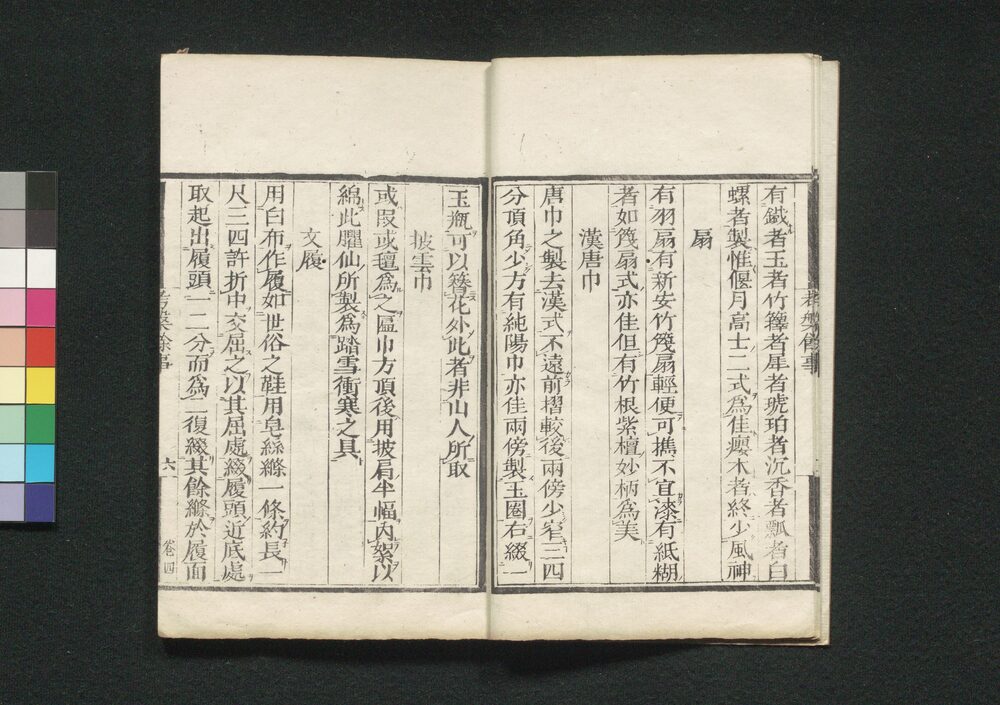 有鐵者玉者竹籜者犀者琥珀者沉香者瓢者白
螺者製惟偃月高士二式爲佳癭木者終少風神
扇
有羽扇有新安竹筏扇輕便可攜不宜漆有紙糊
者如筏扇式亦佳但有竹根紫檀妙柄爲美
漢唐巾
唐巾之製去漢式不遠前摺較後兩傍少窄三四
分頂角少方有純陽巾亦佳兩傍製玉圈右綴一
玉瓶可以簪花外此者非山人所取
披雲巾
或段或氊爲之匾巾方頂後用披肩半幅內絮以
綿此臞仙所製爲踏雪衝寒之具
文履
用白布作履如世俗之鞋用皂絲絛一條約長一
尺三四許折中交屈之以其屈處綴履頭近底處
取起出履頭一二分而爲二復綴其餘絛於履面
考槃餘事
六
卷四
考槃餘事